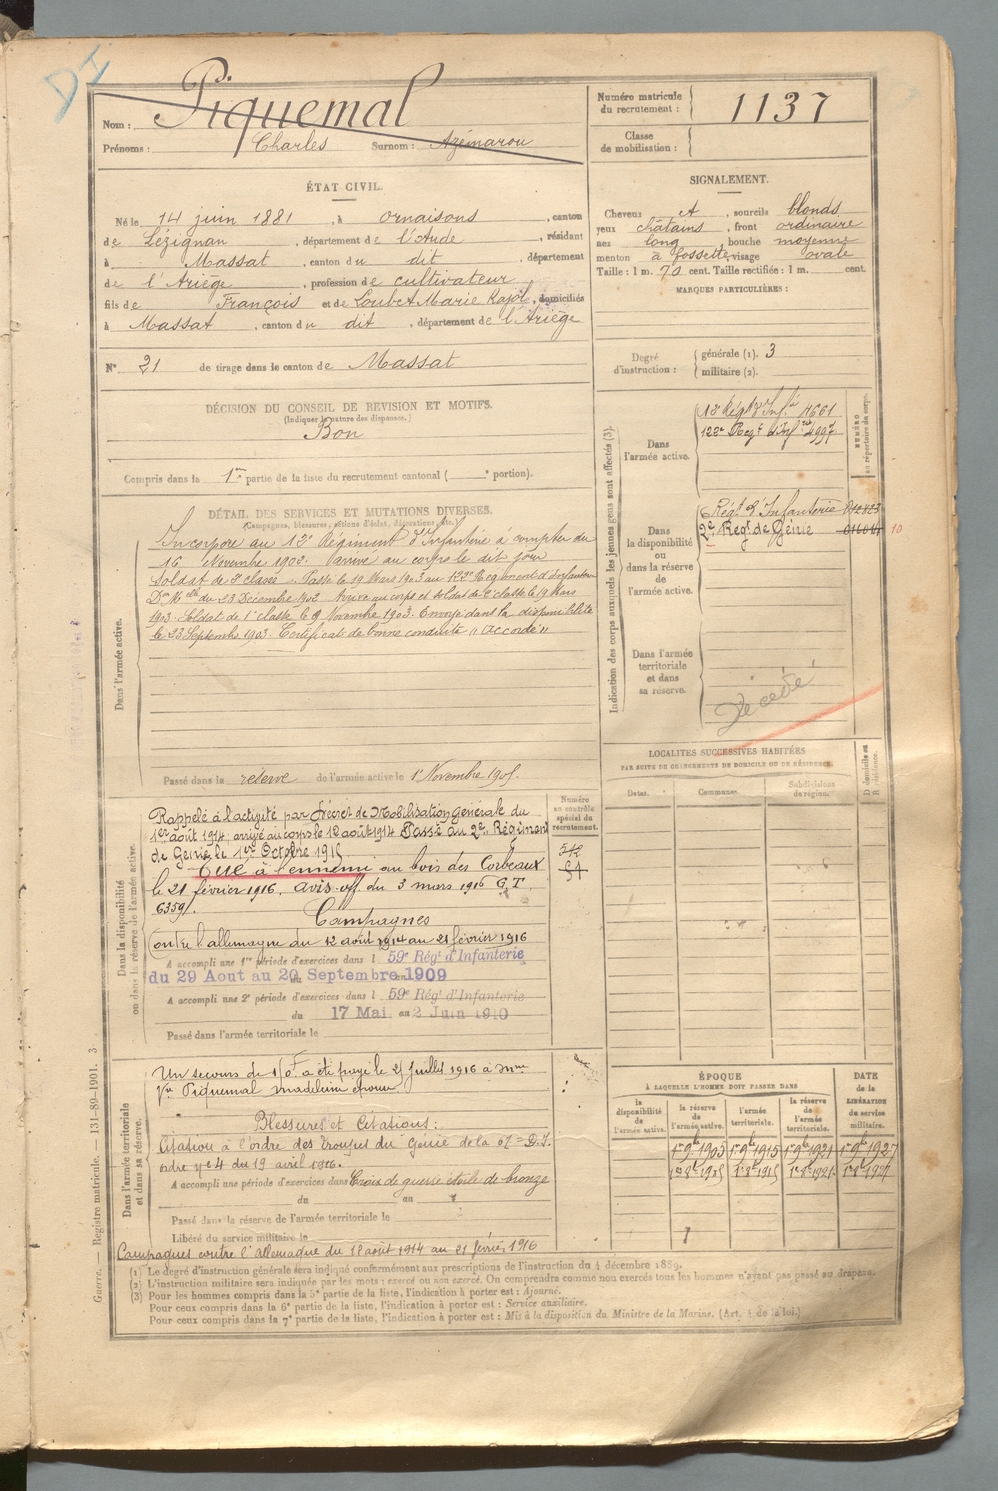 DI
Nom : Piquemal
Prénoms : Charles Surnom : Azémarou
Numéro matricule du recrutement : 1137
Classe de mobilisation :
ÉTAT CIVIL.
Né le 14 juin 1881, à Ornaisons, canton
de Lézignan, département de l'Aude, résidant
à Massat, canton du dit, département
de l'Ariège, profession de cultivateur
fils de François et de Loubet Marie, domiciliés
à Massat, canton du dit, département de l'Ariège
N° 21 de tirage dans le canton de Massat
SIGNALEMENT.
Cheveux et, sourcils blonds
yeux châtains, front ordinaire
nez long, bouche moyenne
menton à fossette, visage ovale
Taille : 1 m. 70 cent. Taille rectifiée : 1 m. cent.
MARQUES PARTICULIÈRES :
Degré d'instruction : générale (1). 3
militaire (2).
DÉCISION DU CONSEIL DE REVISION ET MOTIFS.
(Indiquer la nature des dispenses.)
Bon
Compris dans la 1re partie de la liste du recrutement cantonal ( e portion).
DÉTAIL DES SERVICES ET MUTATIONS DIVERSES.
(Campagnes, blessures, actions d'éclat, décorations, etc.)
Dans l'armée active.
Incorporé au 12e Régiment d'Infanterie à compter du
16 Novembre 1902. Arrivé au corps le dit jour
Soldat de 2e classe. Passé le 19 Mars 1903 au 122e Régiment d'Infanterie
Don Mlle du 23 Décembre 1902. Arrivé au corps et soldat de 2e classe le 19 Mars
1903. Soldat de 1e classe le 9 Novembre 1903. Envoyé dans la disponibilité
le 23 Septembre 1905. Certificat de bonne conduite "Accordé"
Passé dans la réserve de l'armée active le 1 Novembre 1905.
Indication des corps auxquels les jeunes gens sont affectés (3).
NUMÉRO au répertoire du corps.
Dans l'armée active.
12e Régt d'Infie 4661
122e Régt d'Infrie 4997
Dans la disponibilité ou dans la réserve de l'armée active.
Régt d'Infanterie
2e Régt de Génie 10
Dans l'armée territoriale et dans sa réserve.
Décédé
LOCALITÉS SUCCESSIVES HABITÉES
PAR SUITE DE CHANGEMENTS DE DOMICILE OU DE RÉSIDENCE.
Dates. Communes. Subdivisions de région. D domicile ou R résidence.
Dans la disponibilité ou dans la réserve de l'armée active.
Numéro au contrôle spécial du recrutement.
Rappelé à l'activité par Décret de Mobilisation Générale du
1er août 1914, arrivé au corps le 12 août 1914 Passé au 2e Régiment
de Génie le 1er Octobre 1915
Tué à l'ennemi au bois des Corbeaux
le 21 février 1916. avis off. du 3 mars 1916 G.T.
6359.
Campagnes
Contre l'allemagne du 12 août 1914 au 21 février 1916
A accompli une 1re période d'exercices dans l 59e Régt d'Infanterie
du 29 Aout au 20 Septembre 1909
A accompli une 2e période d'exercices dans l 59e Régt d'Infanterie
du 17 Mai au 2 Juin 1910
Passé dans l'armée territoriale le
Dans l'armée territoriale et dans sa réserve.
Un secours de 150F a été payé le 25 Juillet 1916 à Mme
Vve Piquemal Madeleine épouse
Blessures et Citations :
Citation à l'ordre des troupes du Génie de la 67e D.I.
ordre n° 4 du 19 avril 1916.
A accompli une période d'exercices dans Croix de guerre étoile de bronze
du au
Passé dans la réserve de l'armée territoriale le
Libéré du service militaire le
Campagnes contre l'Allemagne du 12 août 1914 au 21 février 1916
ÉPOQUE
À LAQUELLE L'HOMME DOIT PASSER DANS
DATE de la LIBÉRATION du service militaire.
la disponibilité de l'armée active. la réserve de l'armée active. l'armée territoriale. la réserve de l'armée territoriale.
1er 9bre 1905 1er 9bre 1915 1er 9bre 1921 1er 9bre 1927
1er 8e 1905 1er 8e 1915 1er 8e 1921 1er 8e 1927
(1) Le degré d'instruction générale sera indiqué conformément aux prescriptions de l'instruction du 4 décembre 1889.
(2) L'instruction militaire sera indiquée par les mots : exercé ou non exercé. On comprendra comme non exercés tous les hommes n'ayant pas passé au drapeau.
(3) Pour les hommes compris dans la 5e partie de la liste, l'indication à porter est : Ajourné.
Pour ceux compris dans la 6e partie de la liste, l'indication à porter est : Service auxiliaire.
Pour ceux compris dans la 7e partie de la liste, l'indication à porter est : Mis à la disposition du Ministre de la Marine. (Art. 4 de la loi.)
Guerre. — Registre matricule. — 131-89-1901. 3